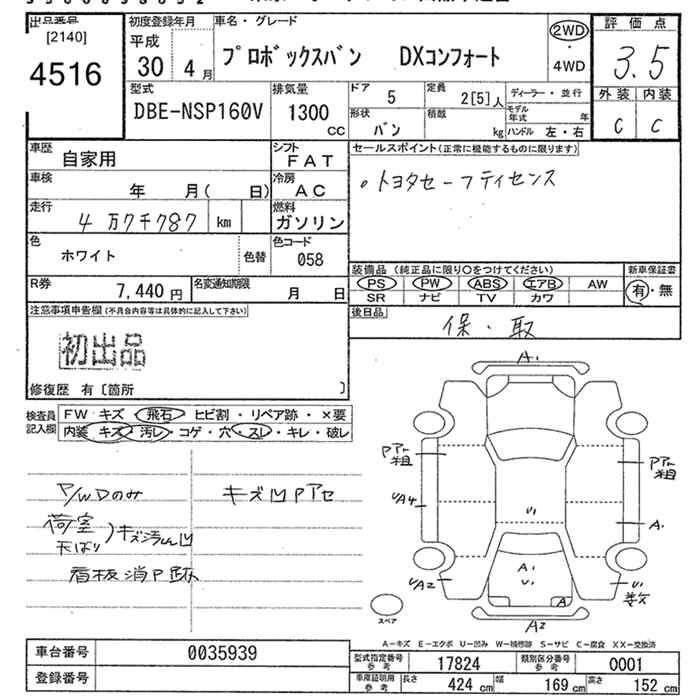 出品番号
[2140]
4516
初度登録年月
平成
30 4 月
車名・グレード
プロボックスバン DXコンフォート
2WD
・
4WD
評価点
3.5
外装 内装
C C
型式
DBE-NSP160V
排気量
1300
CC
ドア
5
定員
2[5]人
形状
バン
積載
kg
ディーラー・並行
モデル年式 年
ハンドル 左・右
車歴
自家用
シフト
FAT
車検
年 月( 日)
冷房
AC
走行
4万7千787 km
燃料
ガソリン
色
ホワイト
色替
色コード
058
R券
7,440 円
名変通知期限
月 日
セールスポイント(正常に機能するものに限ります)
○トヨタセーフティセンス
装備品(純正品に限り○をつけてください)
新車保証書
PS PW ABS エアB AW
SR ナビ TV カワ
有・無
後日品
保・取
注意事項申告欄(不具合内容等は具体的に記入して下さい)
初出品
修復歴 有〔箇所 〕
検査員記入欄
FW キズ・飛石・ヒビ割・リペア跡・×要
内装 キズ・汚レ・コゲ・穴・スレ・キレ・破レ
P/Wのみ
キズ凹Pアセ
荷室
天ばり
看板消P跡
A1
UA4
A1
U1
A1
U1
UA2
U1
A
A2
スペア
A-キズ E-エクボ U-凹み W-補修跡 S-サビ C-腐食 XX-交換済
車台番号
0035939
登録番号
型式指定番号
参考
17824
類別区分番号
参考
0001
車庫証明用
参考
長さ
424 cm
幅
169 cm
高さ
152 cm